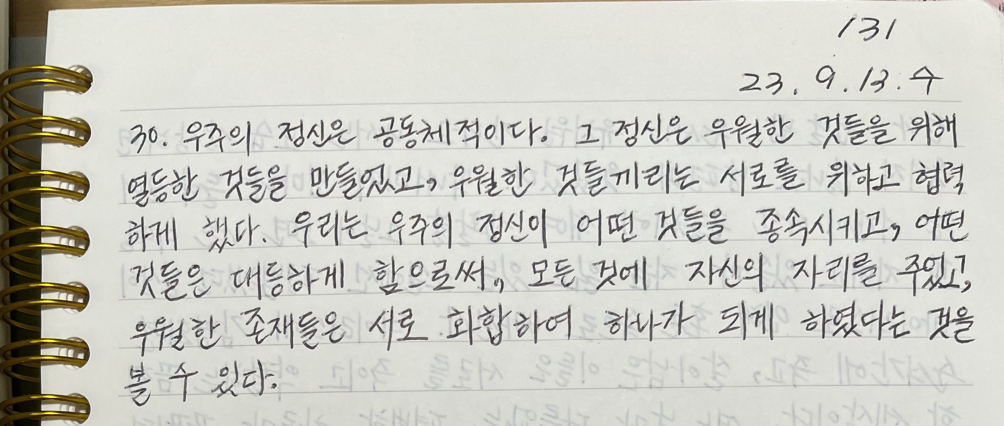 131
23. 9. 13. 수
30. 우주의 정신은 공동체적이다. 그 정신은 우월한 것들을 위해
열등한 것들을 만들었고, 우월한 것들끼리는 서로를 위하고 협력
하게 했다. 우리는 우주의 정신이 어떤 것들을 종속시키고, 어떤
것들은 대등하게 함으로써, 모든 것에 자신의 자리를 주었고,
우월한 존재들은 서로 화합하여 하나가 되게 하였다는 것을
볼 수 있다.